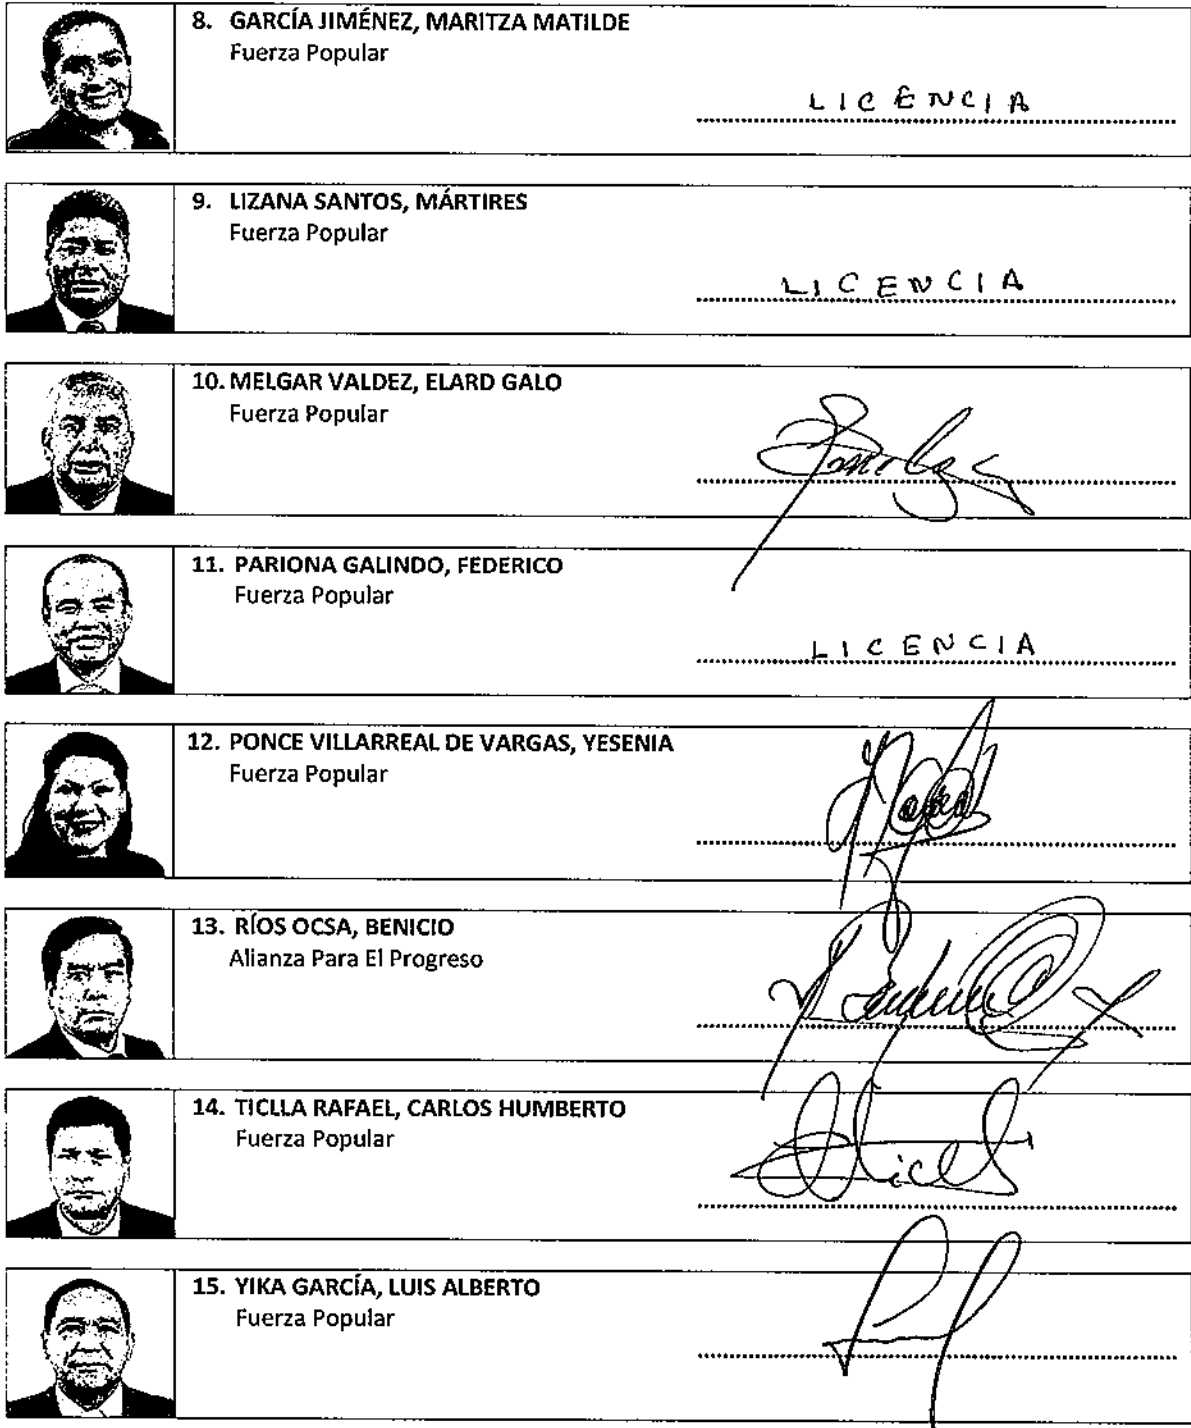 8. GARCÍA JIMÉNEZ, MARITZA MATILDE
Fuerza Popular
LICENCIA
9. LIZANA SANTOS, MÁRTIRES
Fuerza Popular
LICENCIA
10. MELGAR VALDEZ, ELARD GALO
Fuerza Popular
11. PARIONA GALINDO, FEDERICO
Fuerza Popular
LICENCIA
12. PONCE VILLARREAL DE VARGAS, YESENIA
Fuerza Popular
13. RÍOS OCSA, BENICIO
Alianza Para El Progreso
14. TICLLA RAFAEL, CARLOS HUMBERTO
Fuerza Popular
15. YIKA GARCÍA, LUIS ALBERTO
Fuerza Popular